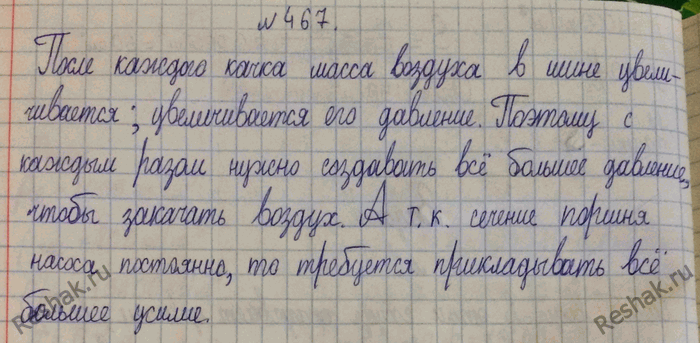 №467.
После каждого качка масса воздуха в шине увели-
чивается; увеличивается его давление. Поэтому с
каждым разом нужно создавать всё большее давление,
чтобы закачать воздух. А т.к. сечение поршня
насоса постоянно, то требуется прикладывать всё
большее усилие.
Reshak.ru
Reshak.ru